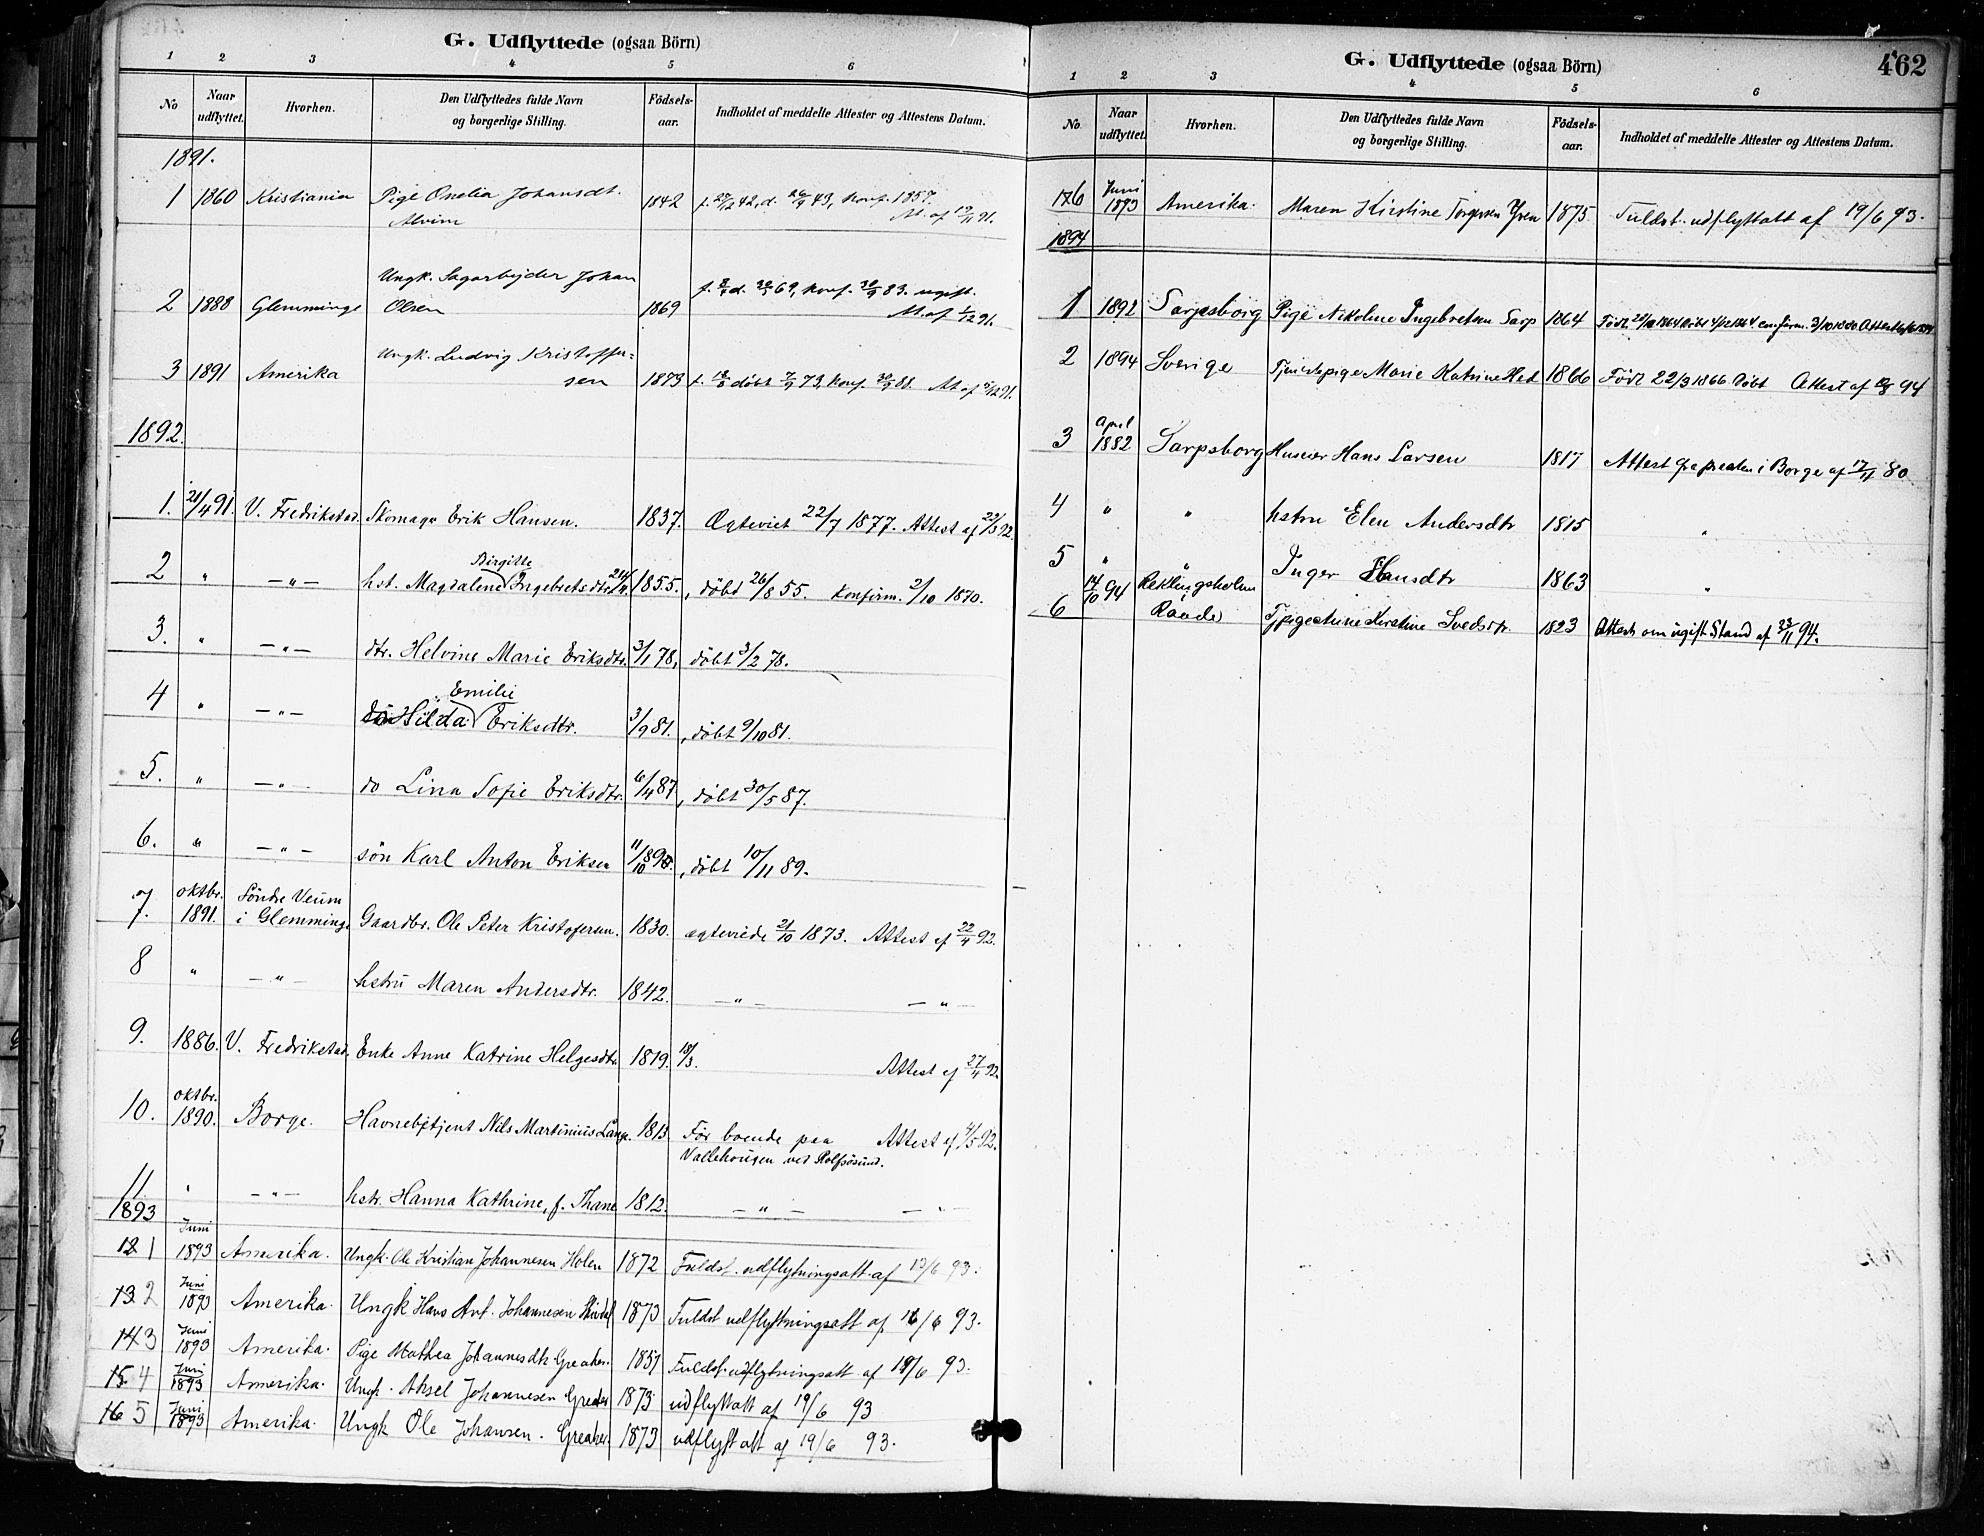 G. Udflyttede (ogsaa Börn)
1 2 3 4 5 6
No
Naar udflyttet.
Hvorhen.
Den Udflyttedes fulde Navn og borgerlige Stilling.
Födsels-aar.
Indholdet af meddelte Attester og Attestens Datum.
1891.
1 1860 Kristiania Pige Onelia Johansdt. 1842 f. 27/12 42, d. 26/4 43, konf. 1857.
Alvim At. af 19/11 91.
Ungk. Sagarbejder Johan
2 1888 Glemminge Olsen 1869 konf. 30/9 83. ugift.
At af 1/12 91.
Ungk. Ludvig Kristoffer-
3 1891 Amerika sen 1873 döbt 7/9 73, konf. At af
1892.
1. 21/4 91. V. Fredrikstad. Skomager Erik Hansen. 1837. Ægteviet 22/7 1877. Attest af 22/3 92.
Birgitte
2 " —"— hst. Magdalene Ingebretsdtr 24/4 1855., döbt 26/8 55. Konfirm. 2/10 1870.
3. " —"— dtr. Helvine Marie Eriksdtr. 3/1 78, döbt 3/2 78.
Emilie
4 " —"— Hilda Eriksdtr. 3/9 81., döbt 9/10 81.
5. " —"— do Lina Sofie Eriksdtr. 6/4 87, döbt 30/5 87.
6. " —"— sön Karl Anton Eriksen 11/10 89., döbt 10/11 89.
oktbr. Söndre Veum
7. 1891. i Glemminge Gaardbr. Ole Peter Kristofersen. 1830. ægteviede 21/10 1873. Attest af 22/4 92.
8 " —"— hstrú Maren Andersdtr. 1842. —"— —"—
9. 1886. V. Fredrikstad. Enke Anne Katrine Helgesdtr 1819. 18/3. Attest af 27/4 92.
oktbr.
10. 1890. Borge. Havnebetjent Nils Martinius Lange. 1813 För boende paa Attest af 4/5 92.
Vallehougen ved Rolfsösund.
11 " —"— hstr. Hanna Kathrine, f. Thane 1812. —"— —"—
1893
Juni
12 1 1893 Amerika. Ungk. Ole Kristian Johannesen Holen 1872 Fuldst. udflytningsatt. af 19/6 93.
Juni
13 2 1893 Amerika. Ungk Hans Ant. Johannesen 1873 Fuldst udflytningsatt af 16/6 93.
Juni
14 3 1893 Amerika. Pige Mathea Johannesdtr Greaker. 1851 Fuldst. udflytningsatt af 19/6 93.
Juni
15 4 1893 Amerika. Ungk. Aksel Johannesen Greaker 1873 udflyttatt af 19/6 93
Juni
16 5 1893 Amerika. Ungk Ole Johansen. Greaker. 1873 udflyttatt af 19/6 93.
G. Udflyttede (ogsaa Börn)
462
1 2 3 4 5 6
No
Naar udflyttet.
Hvorhen.
Den Udflyttedes fulde Navn og borgerlige Stilling.
Födsels-aar.
Indholdet af meddelte Attester og Attestens Datum.
Juni
17 6 1893 Amerika. Maren Kirstine Torgersen Yven 1875 Fuldst. udflyttatt af 19/6 93.
1894
1 1892 Sarpsborg Pige Nikoline Ingebretsen Sarp 1864
2 1894 Sverige Tjenstepige Marie Katrine 1866 Född 22/3 1866 Döbt Attest af 94
April
3 1882 Sarpsborg Huseier Hans Larsen 1817 Attest fra presten i Borge af 17/11 80
4 " " hstru Elen Andersdtr 1815 "
5 " " Inger Hansdtr 1863 "
6 14/10 94 Raade Kirstine 1823 Attest om ugift Stand af 23/11 94.